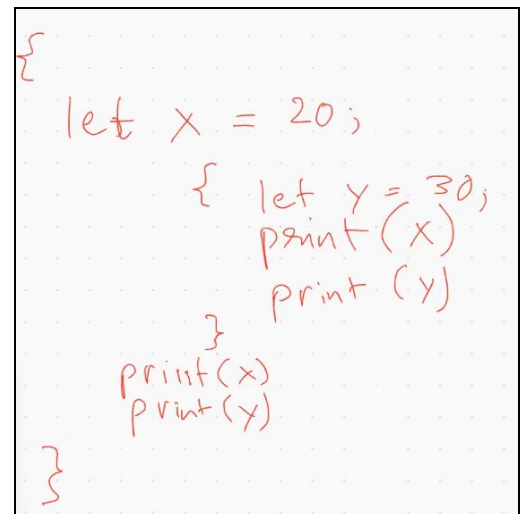 {
let x = 20;
{ let y = 30;
print(x)
print (y)
}
print(x)
print(y)
}